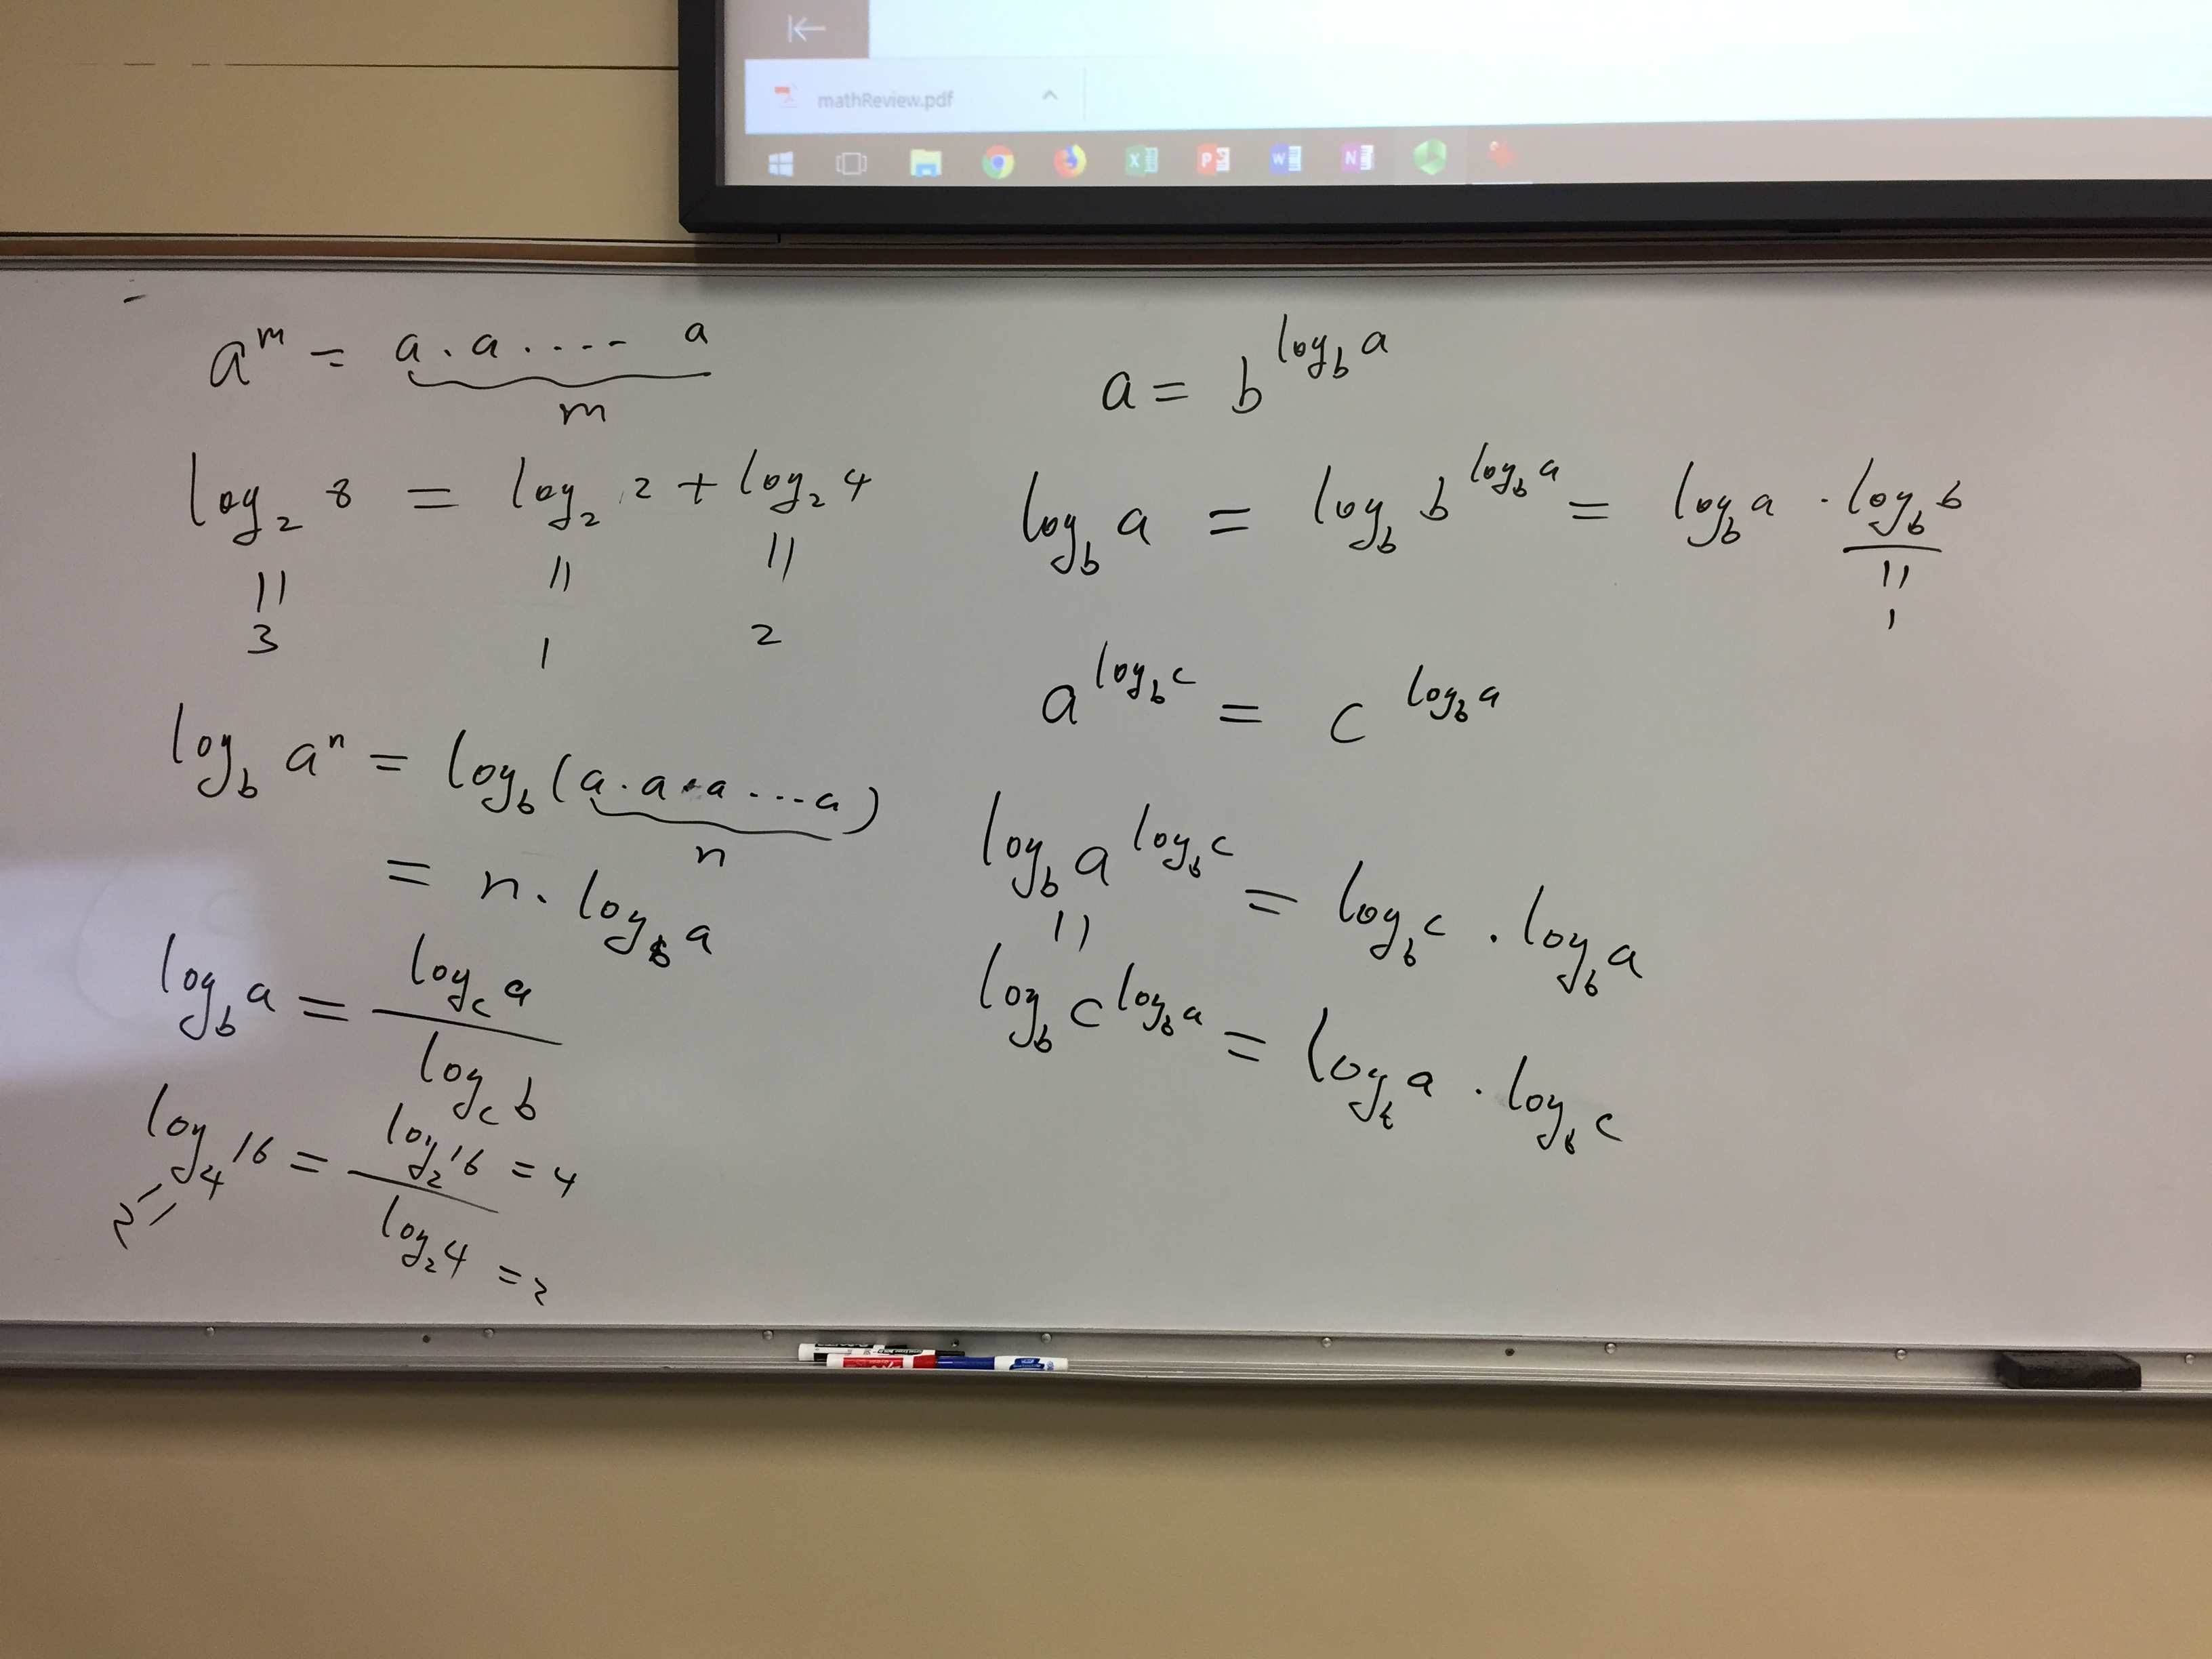 mathReview.pdf
a^m = a . a . ... a
m
log_2 8 = log_2 2 + log_2 4
|| || ||
3 1 2
log_b a^n = log_b (a . a . a ... a)
n
= n . log_b a
log_b a = log_c a / log_c b
log_4 16 = log_2 16 = 4
2 //
log_2 4 = 2
a = b^(log_b a)
log_b a = log_b b^(log_b a) = log_b a . log_b b
||
1
a^(log_b c) = c^(log_b a)
log_b a^(log_b c) = log_b c . log_b a
||
log_b c^(log_b a) = log_b a . log_b c